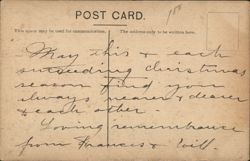 POST CARD.
This space may be used for communication. The address only to be written here.
May this & each
succeeding Christmas
season find you
always nearer & dearer
to each other.
Loving remembrance
from Frances & Will.